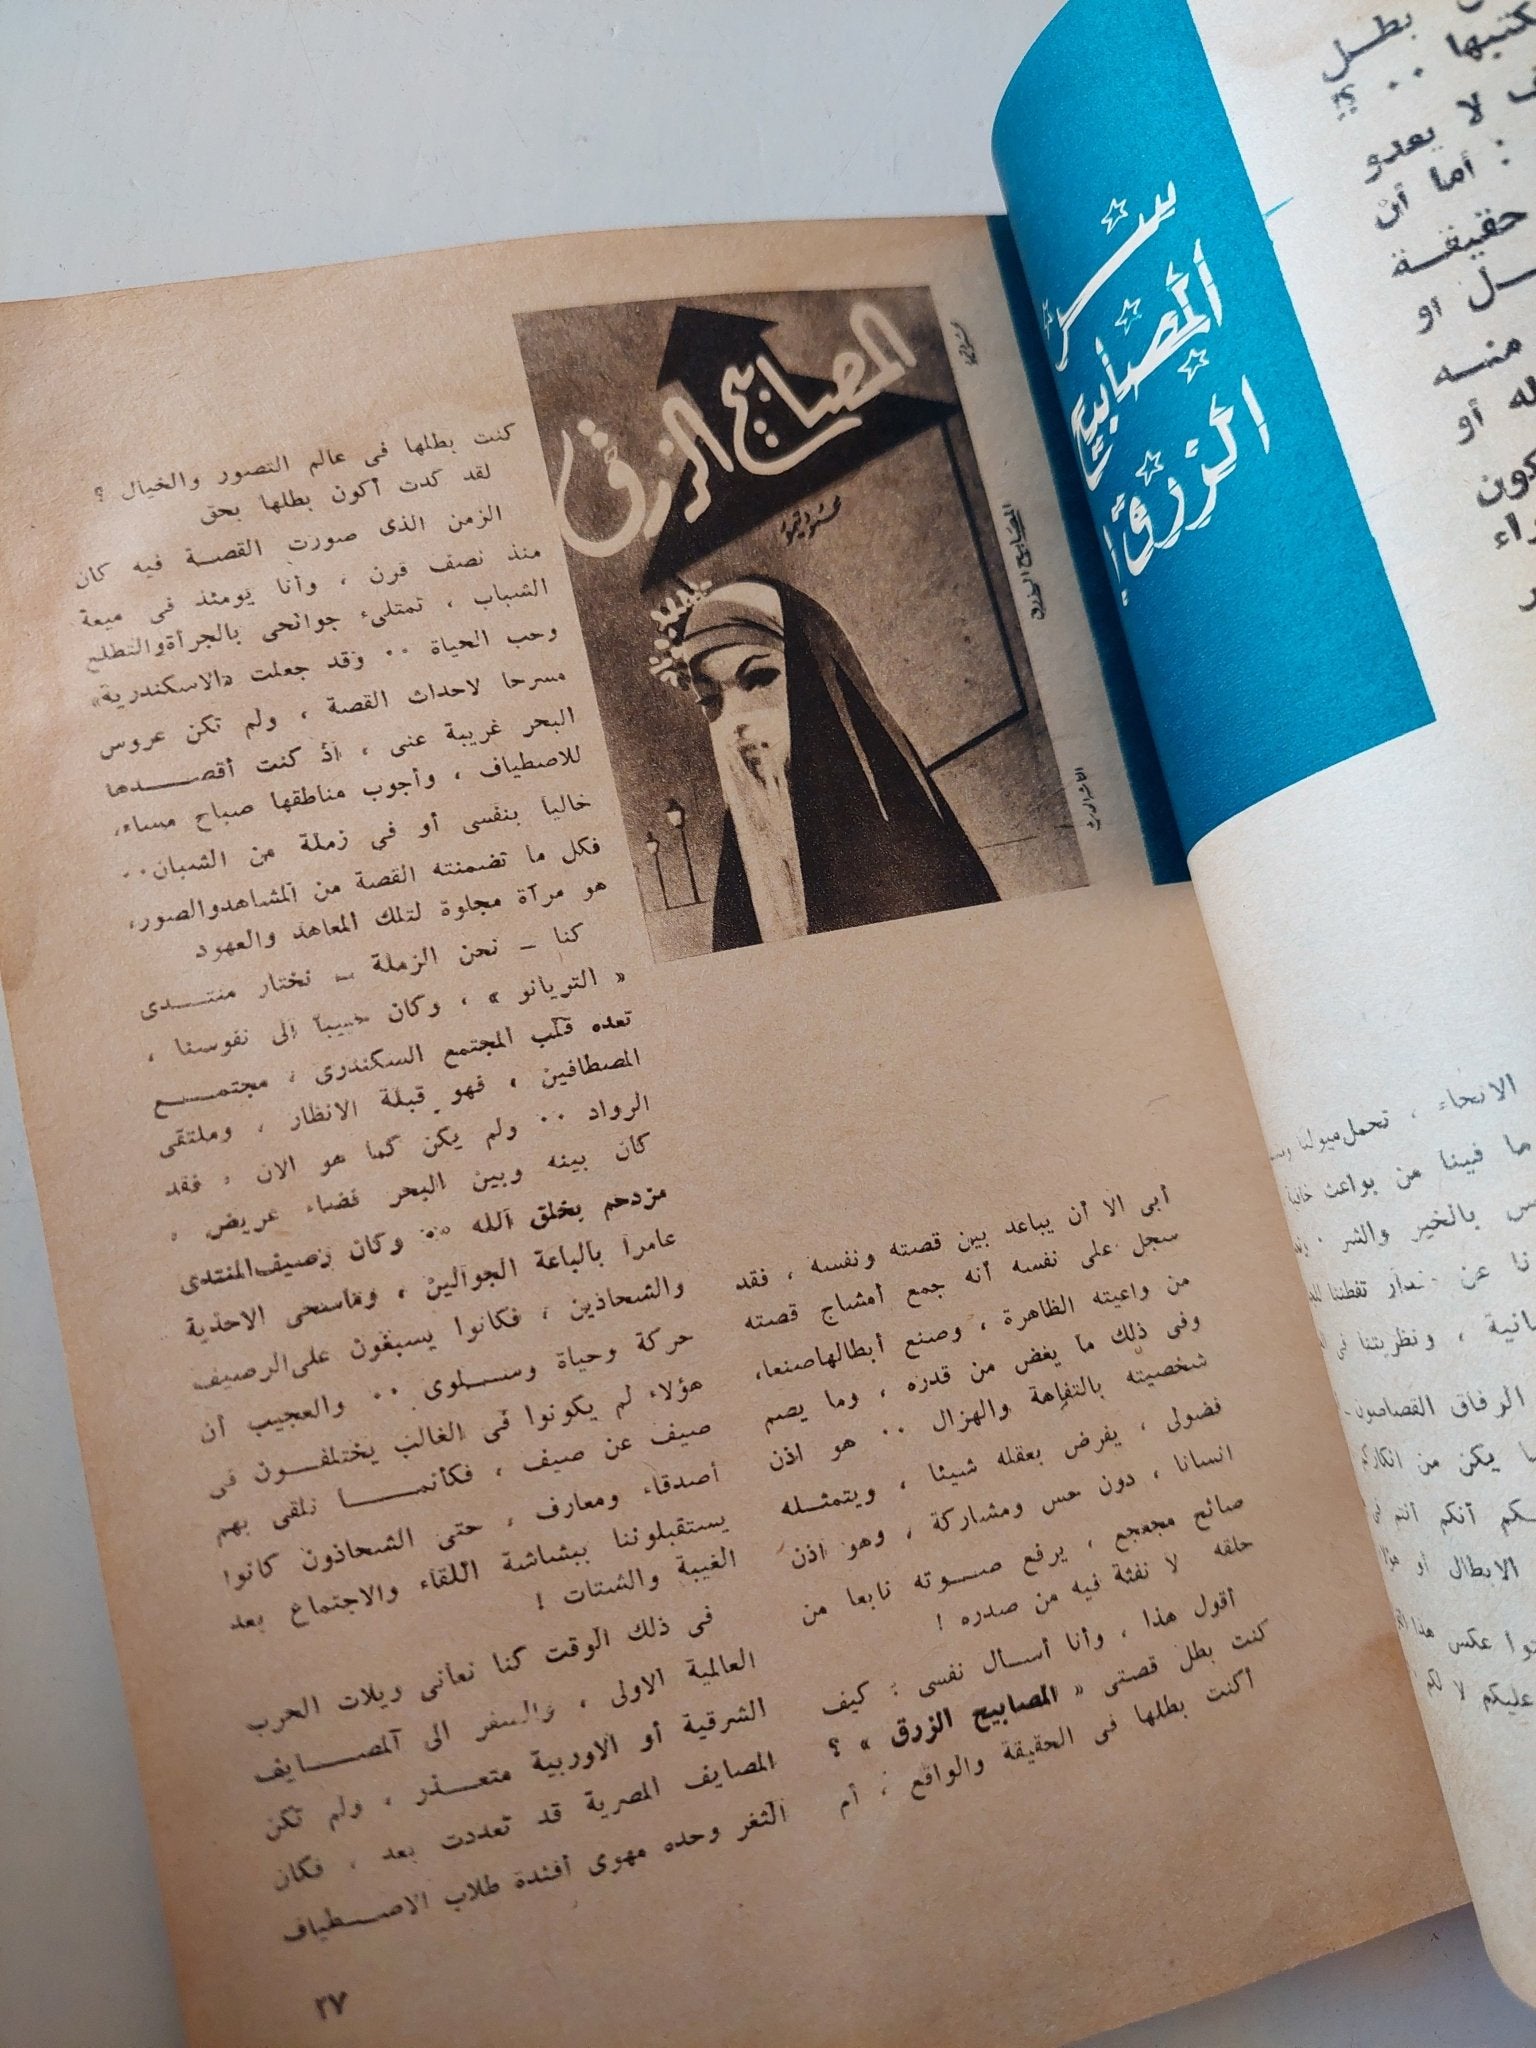 سر
المصابيح
الزرق!
بطل
لا يعدو
: أما أن
حقيقة
او
منه
له أو
الانحاء ، تحمل ميولنا
ما فينا من بواعث
بالخير والشر
تفطننا
، ونظريتنا فى
الرفاق القصاصون
يكن من
أنكم أنتم
الابطال أو
عكس هذا
عليكم لا لكم
المصابيح الزرق
محمود تيمور
المصابيح الزرق
أبى الا أن يباعد بين قصته ونفسه ، فقد
سجل على نفسه أنه جمع أمشاج قصته
من واعيته الظاهرة ، وصنع أبطالها صنعا،
وفى ذلك ما يغض من قدره ، وما يصم
شخصيته بالتفاهة والهزال .. هو اذن
فضولى ، يفرض بعقله شيئا ، ويتمثله
انسانا ، دون حس ومشاركة ، وهو اذن
صائح مجعجع ، يرفع صوته نابعا من
حلقه لا نفثة فيه من صدره !
أقول هذا ، وأنا أسأل نفسى : كيف
كنت بطل قصتى « المصابيح الزرق » ؟
أكنت بطلها فى الحقيقة والواقع ، أم
كنت بطلها فى عالم التصور والخيال ؟
لقد كدت أكون بطلها بحق
الزمن الذى صورت القصة فيه كان
منذ نصف قرن ، وأنا يومئذ فى ميعة
الشباب ، تمتلىء جوانحى بالجرأة والتطلع
وحب الحياة .. وقد جعلت «الاسكندرية»
مسرحا لاحداث القصة ، ولم تكن عروس
البحر غريبة عنى ، اذ كنت أقصدها
للاصطياف ، وأجوب مناطقها صباح مساء،
خاليا بنفسى أو فى زملة من الشبان..
فكل ما تضمنته القصة من المشاهد والصور،
هو مرآة مجلوة لتلك المعاهد والعهود
كنا – نحن الزملة – نختار منتدى
« التريانو » ، وكان حبيبا الى نفوسنا ،
نعده قلب المجتمع السكندرى ، مجتمع
المصطافين ، فهو قبلة الانظار ، وملتقى
الرواد .. ولم يكن كما هو الان ، فقد
كان بينه وبين البحر فضاء عريض ،
مزدحم بخلق الله .. وكان رصيف المنتدى
عامرا بالباعة الجوالين ، وماسحى الاحذية
والشحاذين ، فكانوا يسبغون على الرصيف
حركة وحياة وسلوى .. والعجيب أن
هؤلاء لم يكونوا فى الغالب يختلفون فى
صيف عن صيف ، فكأنما نلقى بهم
أصدقاء ومعارف ، حتى الشحاذون كانوا
يستقبلوننا ببشاشة اللقاء والاجتماع بعد
الغيبة والشتات !
فى ذلك الوقت كنا نعانى ويلات الحرب
العالمية الاولى ، والسفر الى المصايف
الشرقية أو الاوربية متعذر ، ولم تكن
المصايف المصرية قد تعددت بعد ، فكان
الثغر وحده مهوى أفئدة طلاب الاصطياف
٢٧